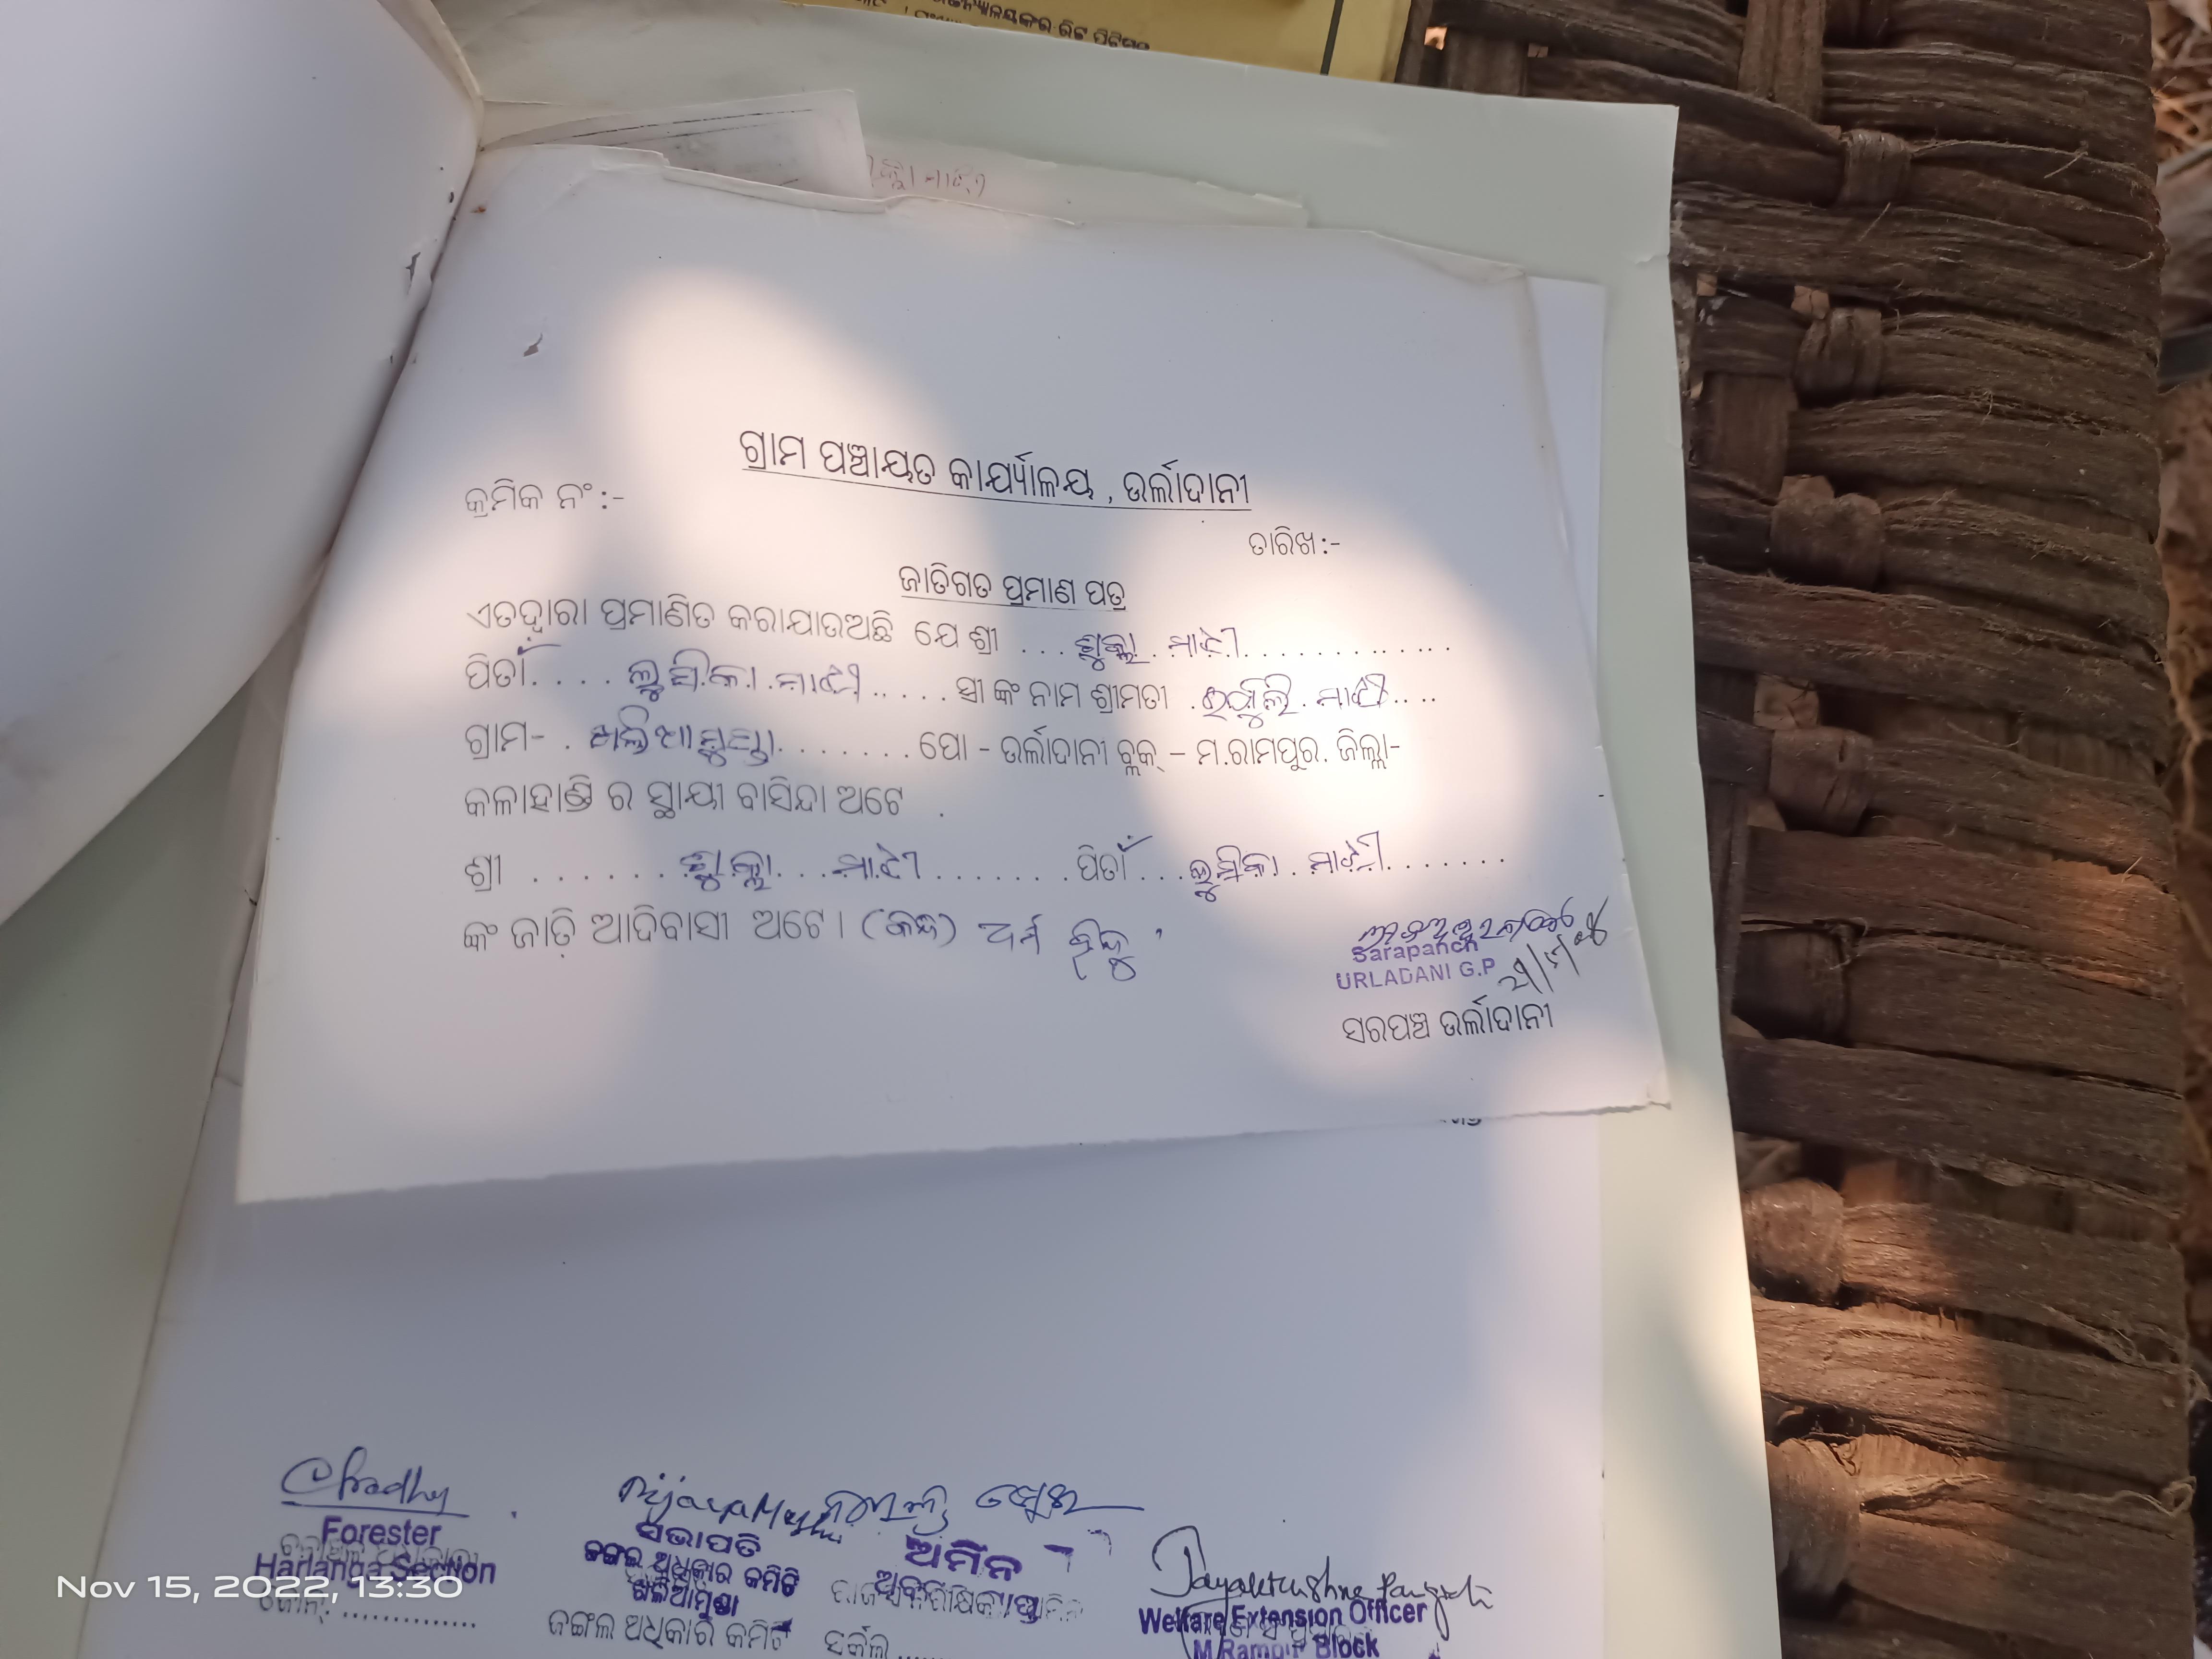 ରିଟ ପିଟିସନ
ମାଝୀ
ଗ୍ରାମ ପଞ୍ଚାୟତ କାର୍ଯ୍ୟାଳୟ , ଉର୍ଲାଦାନୀ
କ୍ରମିକ ନଂ :-
ତାରିଖ :-
ଜାତିଗତ ପ୍ରମାଣ ପତ୍ର
ଏତଦ୍ୱାରା ପ୍ରମାଣିତ କରାଯାଉଅଛି ଯେ ଶ୍ରୀ ... ଶୁକ୍ଲା . ମାଝୀ ............
ପିତାଁ .... ଲୁସିକା . ମାଝୀ ..... ସ୍ତ୍ରୀ ଙ୍କ ନାମ ଶ୍ରୀମତୀ . ମାଝୀ ....
ଗ୍ରାମ- . ଖଲିଆମୁଣ୍ଡା ........ ପୋ - ଉର୍ଲାଦାନୀ ବ୍ଲକ୍ – ମ.ରାମପୁର. ଜିଲ୍ଲା-
କଳାହାଣ୍ଡି ର ସ୍ଥାୟୀ ବାସିନ୍ଦା ଅଟେ .
ଶ୍ରୀ ....... ଶୁକ୍ଲା ... ମାଝୀ ........ ପିତାଁ ... ଲୁସିକା . ମାଝୀ .......
ଙ୍କ ଜାତି ଆଦିବାସୀ ଅଟେ । (କନ୍ଧ) ଧର୍ମ ହିନ୍ଦୁ
Sarapanch
URLADANI G.P
ସରପଞ୍ଚ ଉର୍ଲାଦାନୀ
Forester
Harlanga Section
ସଭାପତି
ଜଙ୍ଗଲ ଅଧିକାର କମିଟି
ଖଲିଆମୁଣ୍ଡା
ଜଙ୍ଗଲ ଅଧିକାର କମିଟି
ଅମିନ
ସର୍କଲ ......
Jayakrushna
Welfare Extension Officer
M.Rampur Block
Nov 15, 2022, 13:30